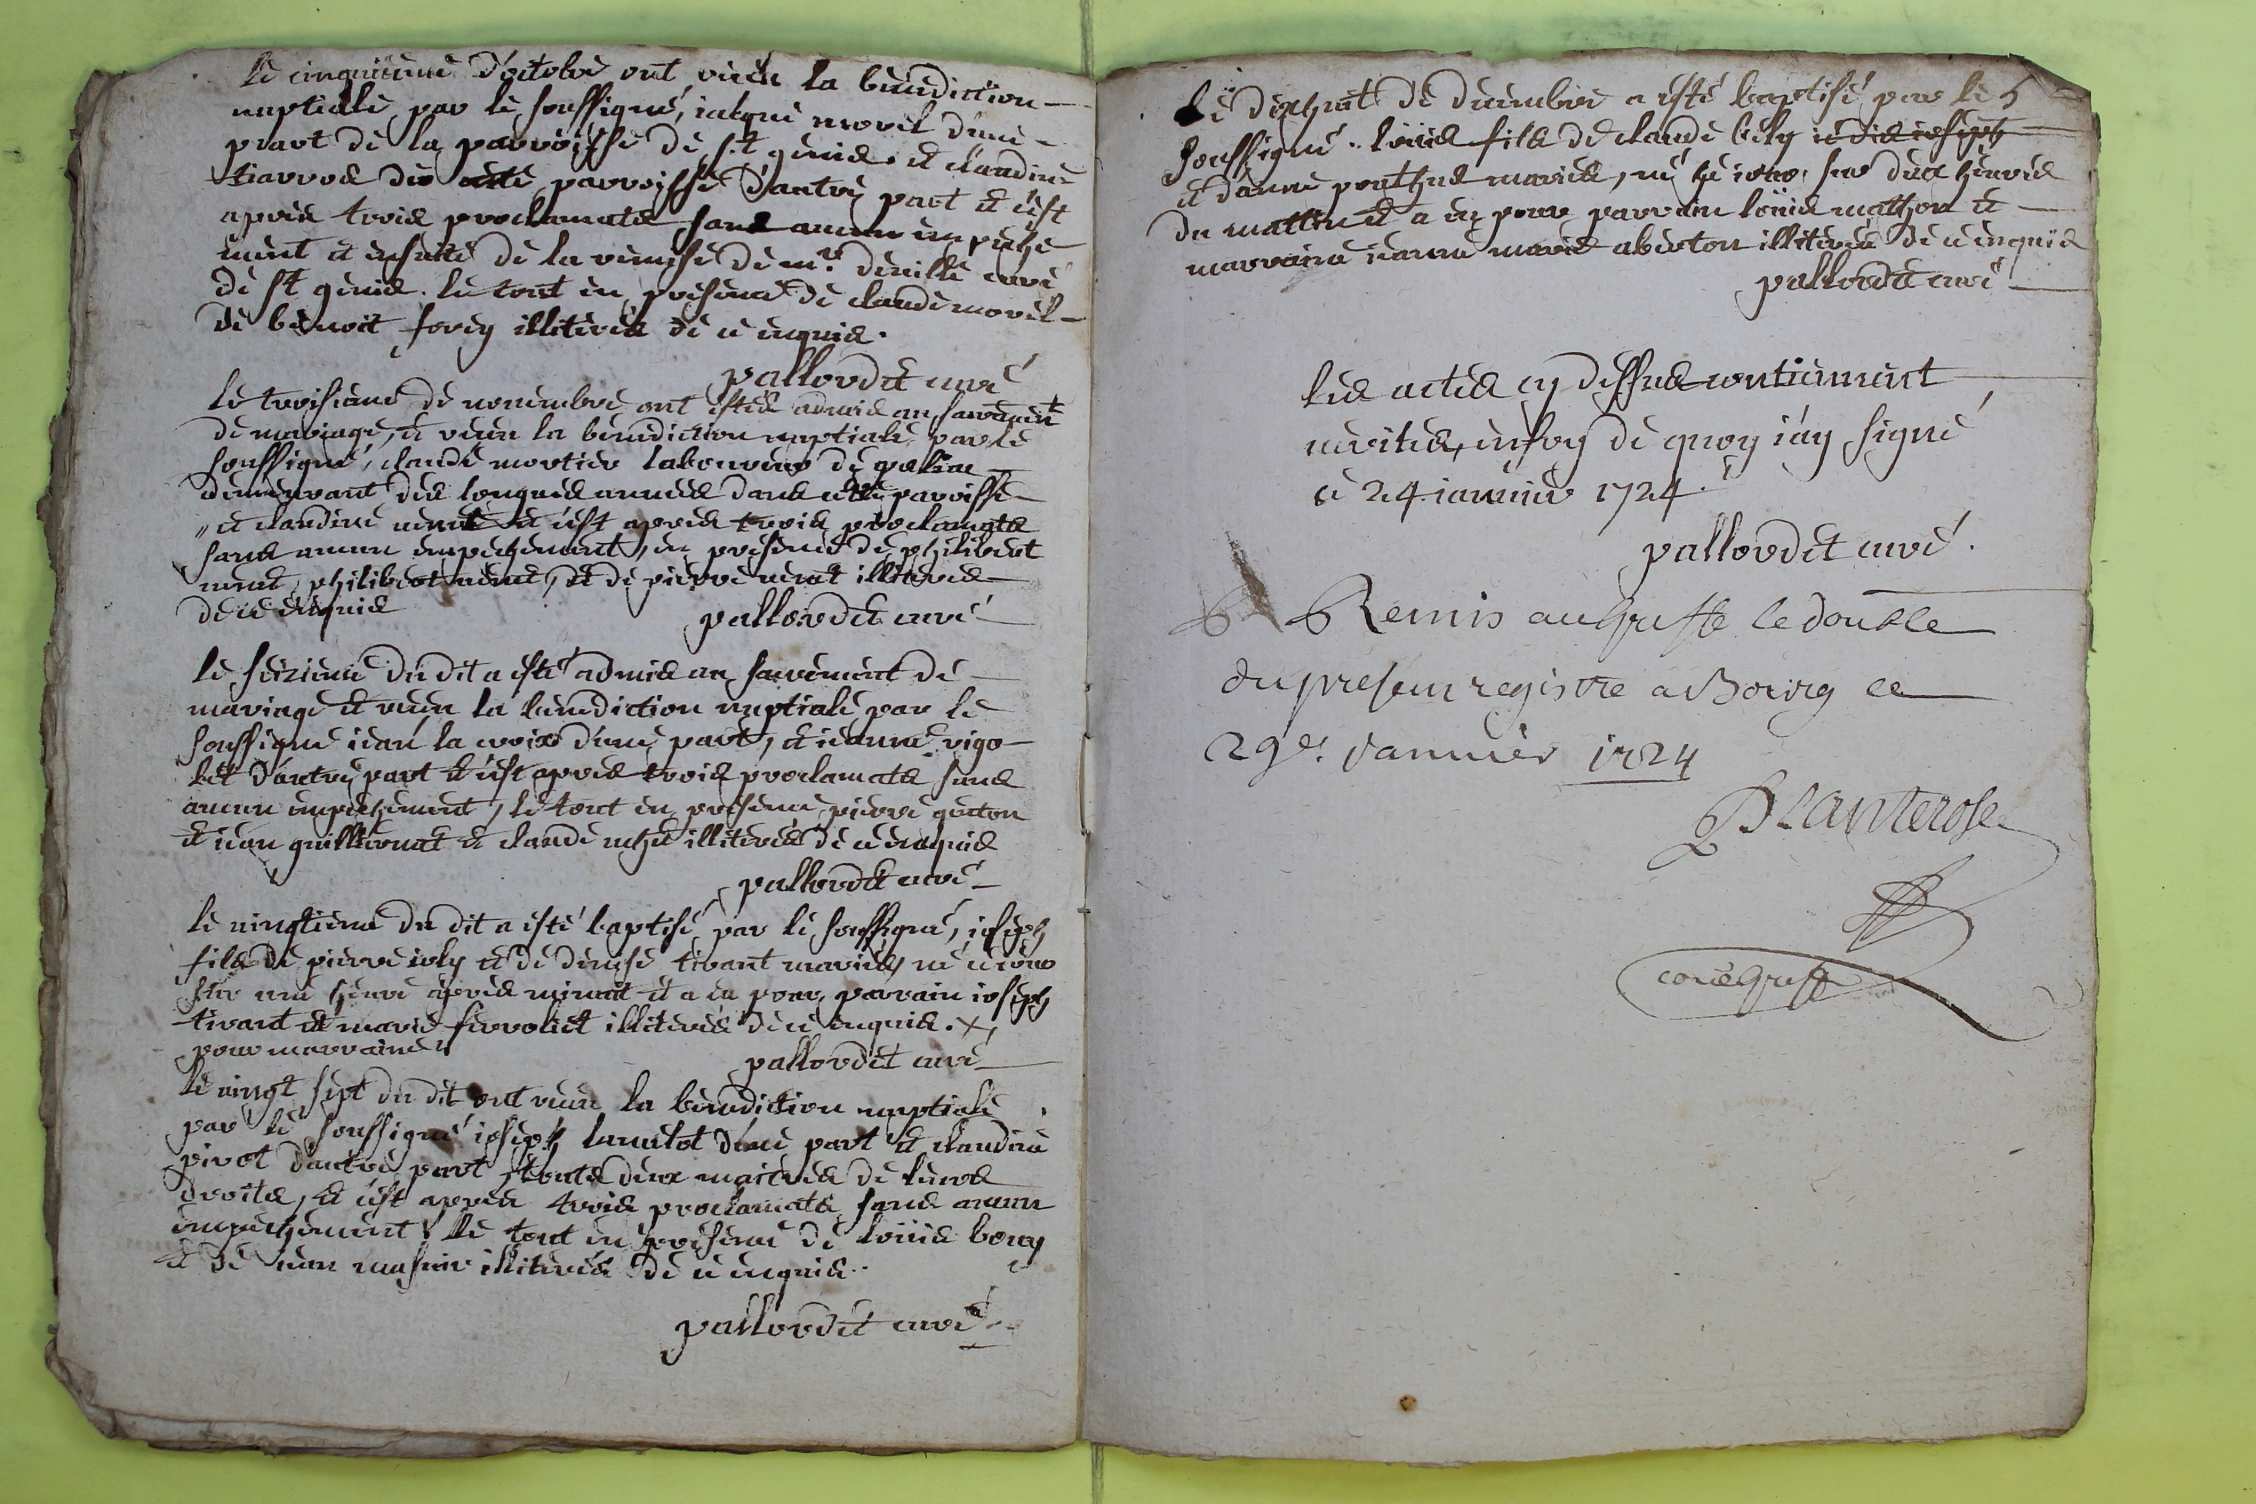 le cinquiesme d'octobre ont receu la benediction
nuptialle par le soussigné, iaque morel d'une
part de la parroisse de st genis. et claudine
tiarrod de cette parroisse d'autre part et c'est
apres trois proclamats sans aucun empeche
ment et ensuite de la remise de mr. deville curé
de st genis. le tout en presence de claude morel
de benoit forey illiterés de ce enquis.
pallordet curé
le troisieme de novembre ont estés admis au sacrement
de mariage, et receu la benediction nuptiale par le
soussigné, claude mortier laboureur de
demeurant des longues années dans cette paroisse
et claudine et c'est apres trois proclamats
sans aucun empechement, en presence de philibert
philibert et de pierre illiterés
de ce enquis
pallordet curé
le seizieme du dit a esté admis au sacrement de
mariage et receu la benediction nuptiale par le
soussigné iean la croix d'une part, et ieanne vigo
let d'autre part et c'est apres trois proclamats sans
aucun empechement, le tout en presence pierre guiton
et iean guillermet et claude illiterés de ce enquis
pallordet curé
le vingtieme du dit a esté baptisé par le soussigné, ioseph
fils de pierre ioly et de denise tirant mariés, né ce iour
sur une heure apres minuit et a eu pour parrain ioseph
tirant et marie ferrolliet illiterés de ce enquis. x
pour marraine
pallordet curé
le vingt sept du dit ont receu la benediction nuptiale
par le soussigné ioseph d'une part et claudine
pivot d'autre part, touts deux maitres de leurs
droits, et c'est apres trois proclamats sans aucun
empechement. le tout en presence de loüis bouy
et de iean illiterés de ce enquis.
pallordet curé
le dixhuit de decembre a esté baptisé par le
soussigné. loüis fils de claude bely ie dis ioseph
et d'anne ponthus mariés, né ce iour sur deux heures
du mattin et a eu pour parrain loüis mathon et
marraine ieanne marie aberton illiterés de ce enquis
pallordet curé
les actes cy dessus contiennent
verités, en foy de quoy i'ay signé
ce 24 ianvier 1724.
pallordet curé.
Remis au Greffe le double
du present registre a Bourg ce
29e. Janvier 1724
Blanterose
con̄e Greff